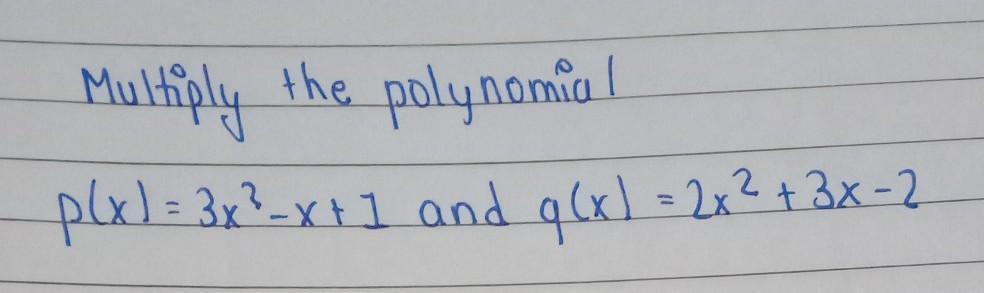 Multiply the polynomial
p(x) = 3x³ - x + 1 and q(x) = 2x² + 3x - 2